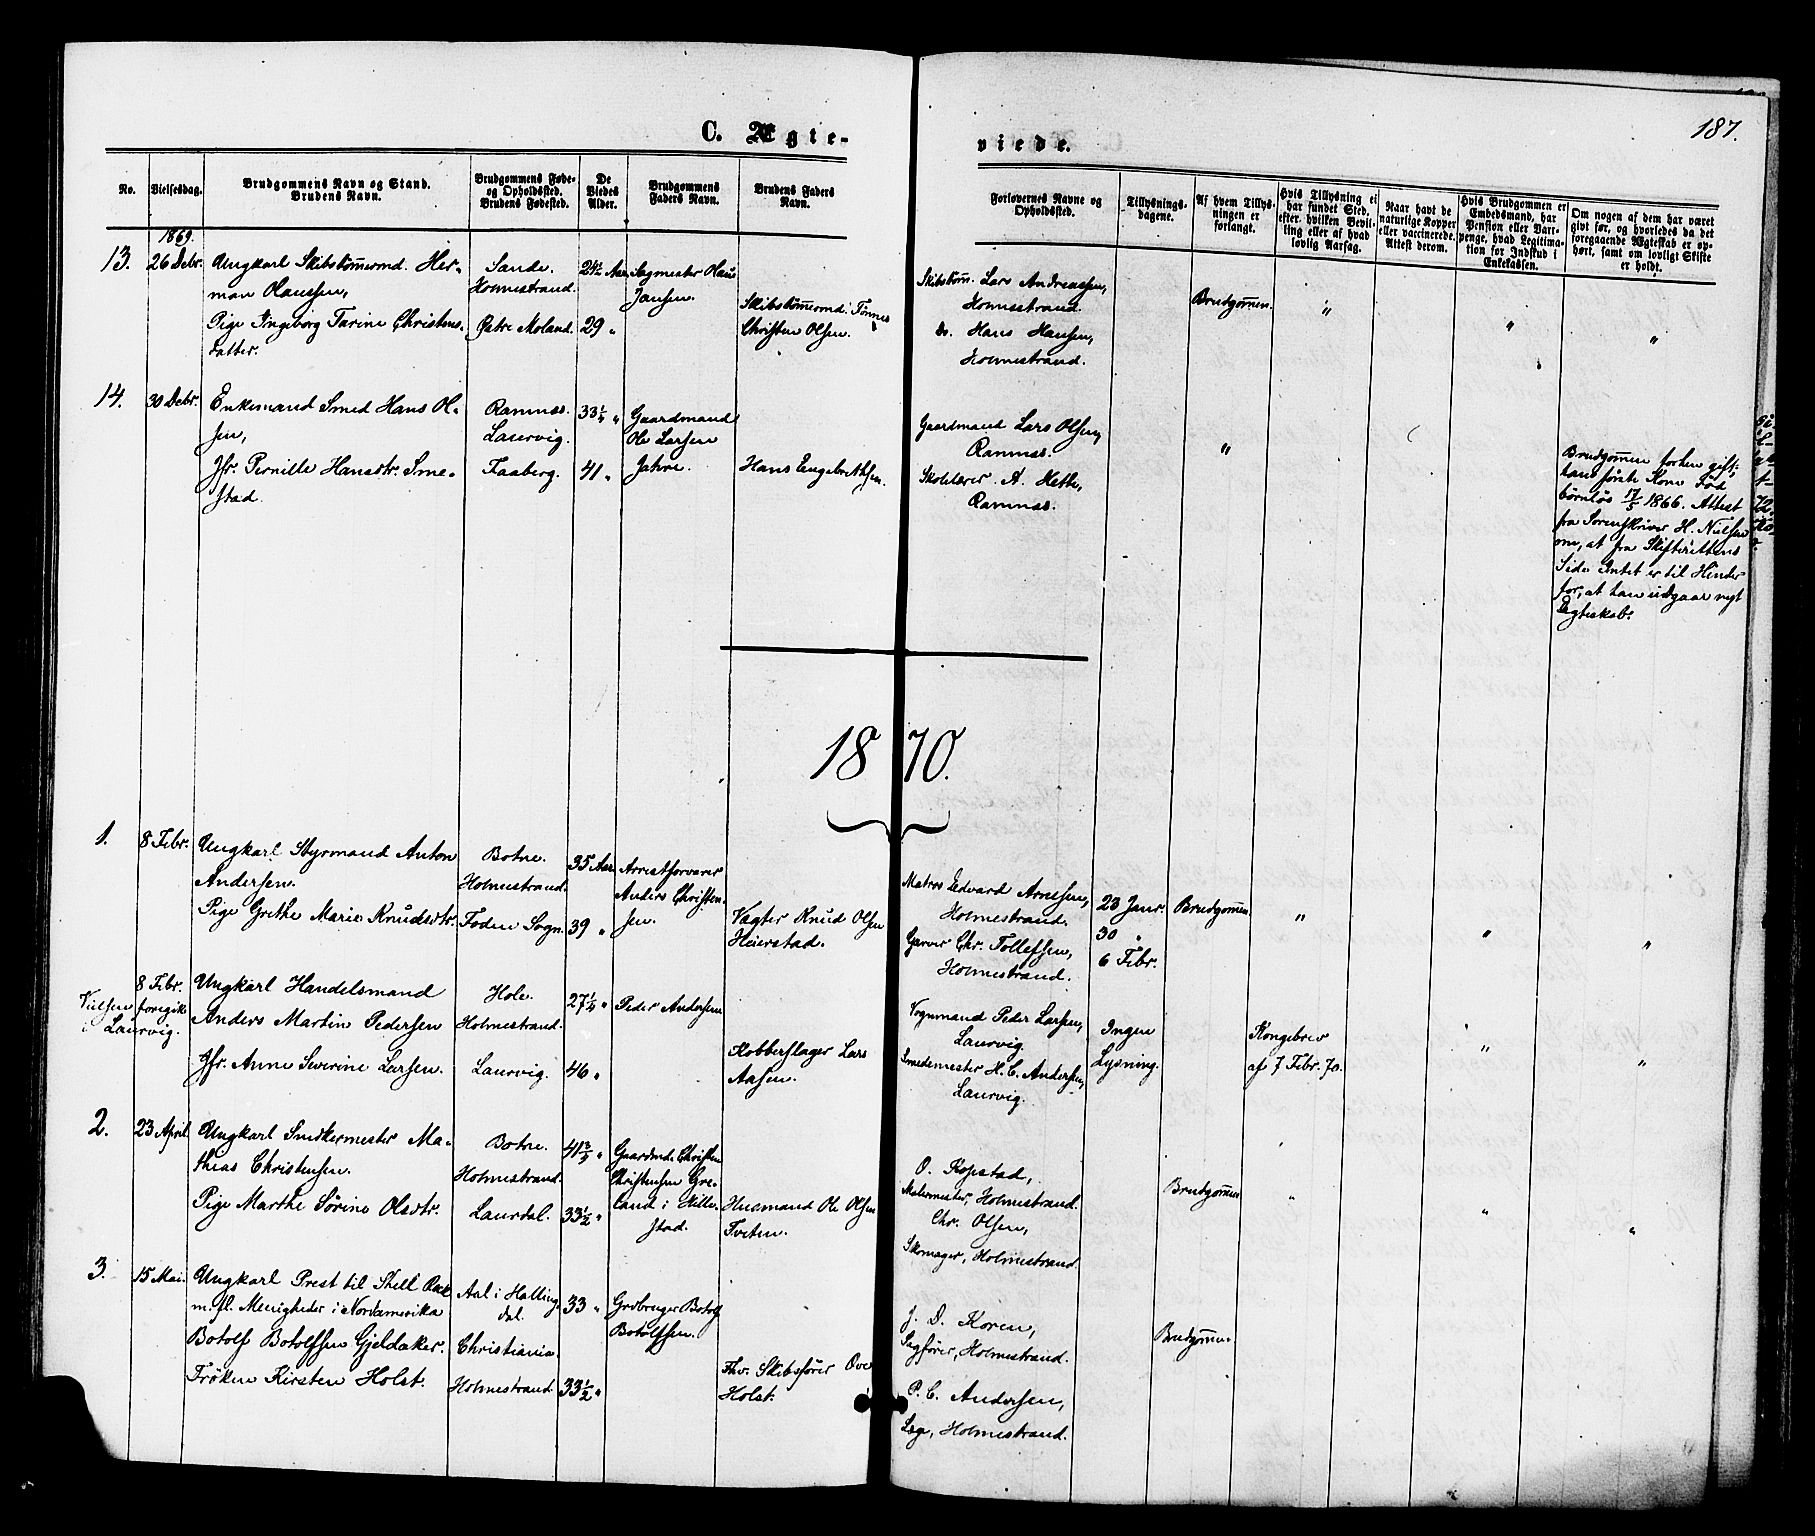 C. Ægte-
viede.
187.
No.
Vielsesdag.
Brudgommens Navn og Stand.
Brudens Navn.
Brudgommens Føde-
og Opholdssted.
Brudens Fødested.
De
Viedes
Alder.
Brudgommens
Faders Navn.
Brudens Faders
Navn.
Forlovernes Navne og
Opholdssted.
Tillysnings-
dagene.
Af hvem Tillys-
ningen er
forlangt.
Hvis Tillysning ei
har fundet Sted,
efter hvilken Bevil-
ling eller af hvad
lovlig Aarsag.
Naar havt de
naturlige Kopper
eller vaccinerede.
Attest derom.
Hvis Brudgommen er
Embedsmand, har
Pension eller Vart-
penge, hvad Legitima-
tion for Indskud i
Enkekassen.
Om nogen af dem har været
givt før, og hvorledes da det
foregaaende Ægteskab er op-
hørt, samt om lovligt Skifte
er holdt.
1869.
13.
26 Debr.
Ungkarl Skibstømmermd. Her-
man Olaussen,
Pige Ingeborg Tarine Christens-
datter.
Sande.
Holmestrand.
Østre Moland.
24½ Aar
29 "
Sagmester Olaus
Jansen.
Skibstømmermd. Tønnes
Christen Olsen.
Skibstøm. Lars Andreassen,
Holmestrand.
do. Hans Hansen,
Holmestrand.
Brudgommen.
"
"
"
14.
30 Debr.
Enkemand Smed Hans Ol-
sen,
Jfr. Pernille Hansdtr. Sme-
stad.
Ramnæs.
Laurvig.
Faaberg.
33¼ "
41 "
Gaardmand
Ole Larsen
Jahre.
Hans Engebrethsen.
Gaardmand Lars Olsen,
Ramnæs.
Skolelærer A. Hette,
Ramnæs.
"
Brudgommen forhen gift;
hans første Kone død
børnløs 17/5 1866. Attest
fra Sorenskriver H. Nielsen
om, at fra Skifterettens
Side Intet er til Hinder
for, at han indgaar nyt
Ægteskab.
1870.
1.
8 Febr.
Ungkarl Styrmand Anton
Andersen.
Pige Grethe Marie Knudsdtr.
Botne.
Holmestrand.
Foden Sogn.
35 Aar
39 "
Arrestforvarer
Anders Christen-
sen.
Vægter Knud Olsen
Heierstad.
Matros Edvard Arnesen,
Holmestrand.
Garver Chr. Tollefsen,
Holmestrand.
23 Janr.
30 "
6 Febr.
Brudgommen.
"
"
"
8 Febr.
Vielsen foregik
i Laurvig.
Ungkarl Handelsmand
Anders Martin Pedersen
Jfr. Anne Severine Larsen.
Hole.
Holmestrand.
Laurvig.
27¼ "
46 "
Peder Andersen
Kobberslager Lars
Aasen.
Vognmand Peder Larsen,
Laurvig
Smedemester H. C. Andersen,
Laurvig.
Ingen
Lysning.
Kongebrev
af 7 Febr. 70.
"
"
"
2.
23 April
Ungkarl Snedkermester Ma-
thias Christensen.
Pige Marthe Sørine Olsdtr.
Botne.
Holmestrand.
Laurdal.
41¾ "
33½ "
Gaardmd. Christen
Christensen Gre-
land i Hille-
stad.
Husmand Ole Olsen
Tveten.
O. Kopstad,
Malermester, Holmestrand.
Chr. Olsen,
Skomager, Holmestrand.
Brudgommen
"
"
"
3.
15 Mai.
Ungkarl Prest til Skell
m. fl. Menigheder i Nordamerika
Botolf Botolfsen Gjeldaker.
Frøken Kirsten Holst.
Aal i Halling-
dal.
Christiania.
Holmestrand.
33 "
33½ "
Grdbruger Botolf
Botolfsen.
Fhv. Skibsfører Ove
Holst.
J. D. Koren,
Sagfører, Holmestrand.
P. C. Andersen,
Læge, Holmestrand.
Brudgommen.